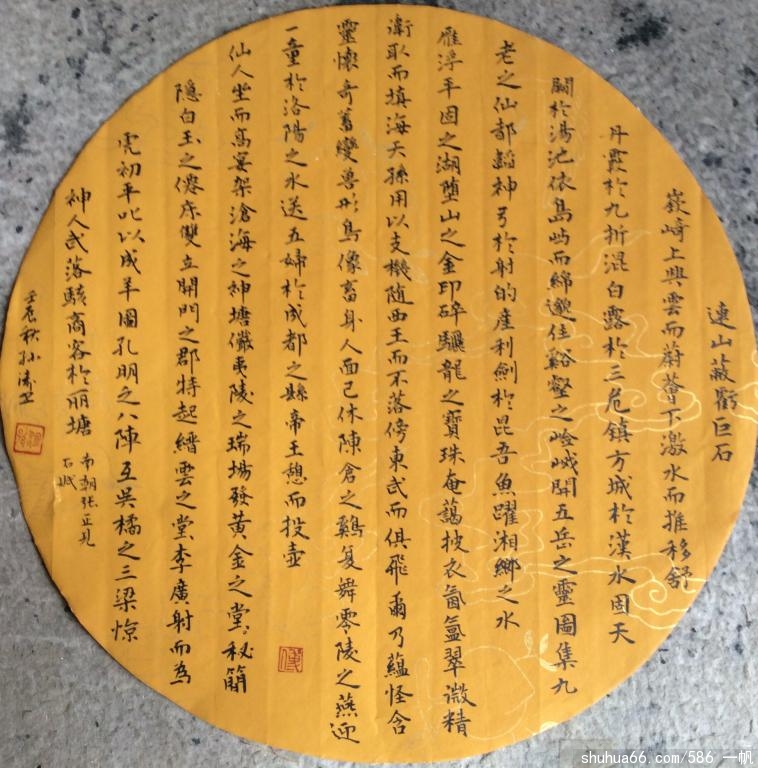 連山蔽虧巨石
嶔崎上興雲而蔚薈下激水而推移舒
丹霞於九折混白露於三危鎮方城於漢水固天
闕於湯池依島嶼而綿邈佳谿壑之嶮巇開五岳之靈圖集九
老之仙都韜神弓於射的崖利劍於昆吾魚躍湘鄉之水
雁浮平固之湖墮山之金印碎驪龍之寶珠奄藹披衣氤氳翠微精
衛取而填海天孫用以支機隨西王而不落傍東武而俱飛爾乃蘊怪含
靈懷奇蓄變獸形鳥像畜身人面已休陳倉之鷄复舞零陵之燕迎
一童於洛陽之水送五婦於成都之縣帝王憩而投壺
仙人坐而高宴架滄海之神塘儼夷陵之瑞場發黃金之堂秘簡
隱白玉之僊床雙立開門之郡特起縉雲之堂李廣射而為
虎初平叱以成羊圖孔明之八陣互吳橘之三梁惊
神人武落駭商客於丽塘
南朝张正見
石賦
壬辰秋孙涛书
shuhua66.com/586 一帆